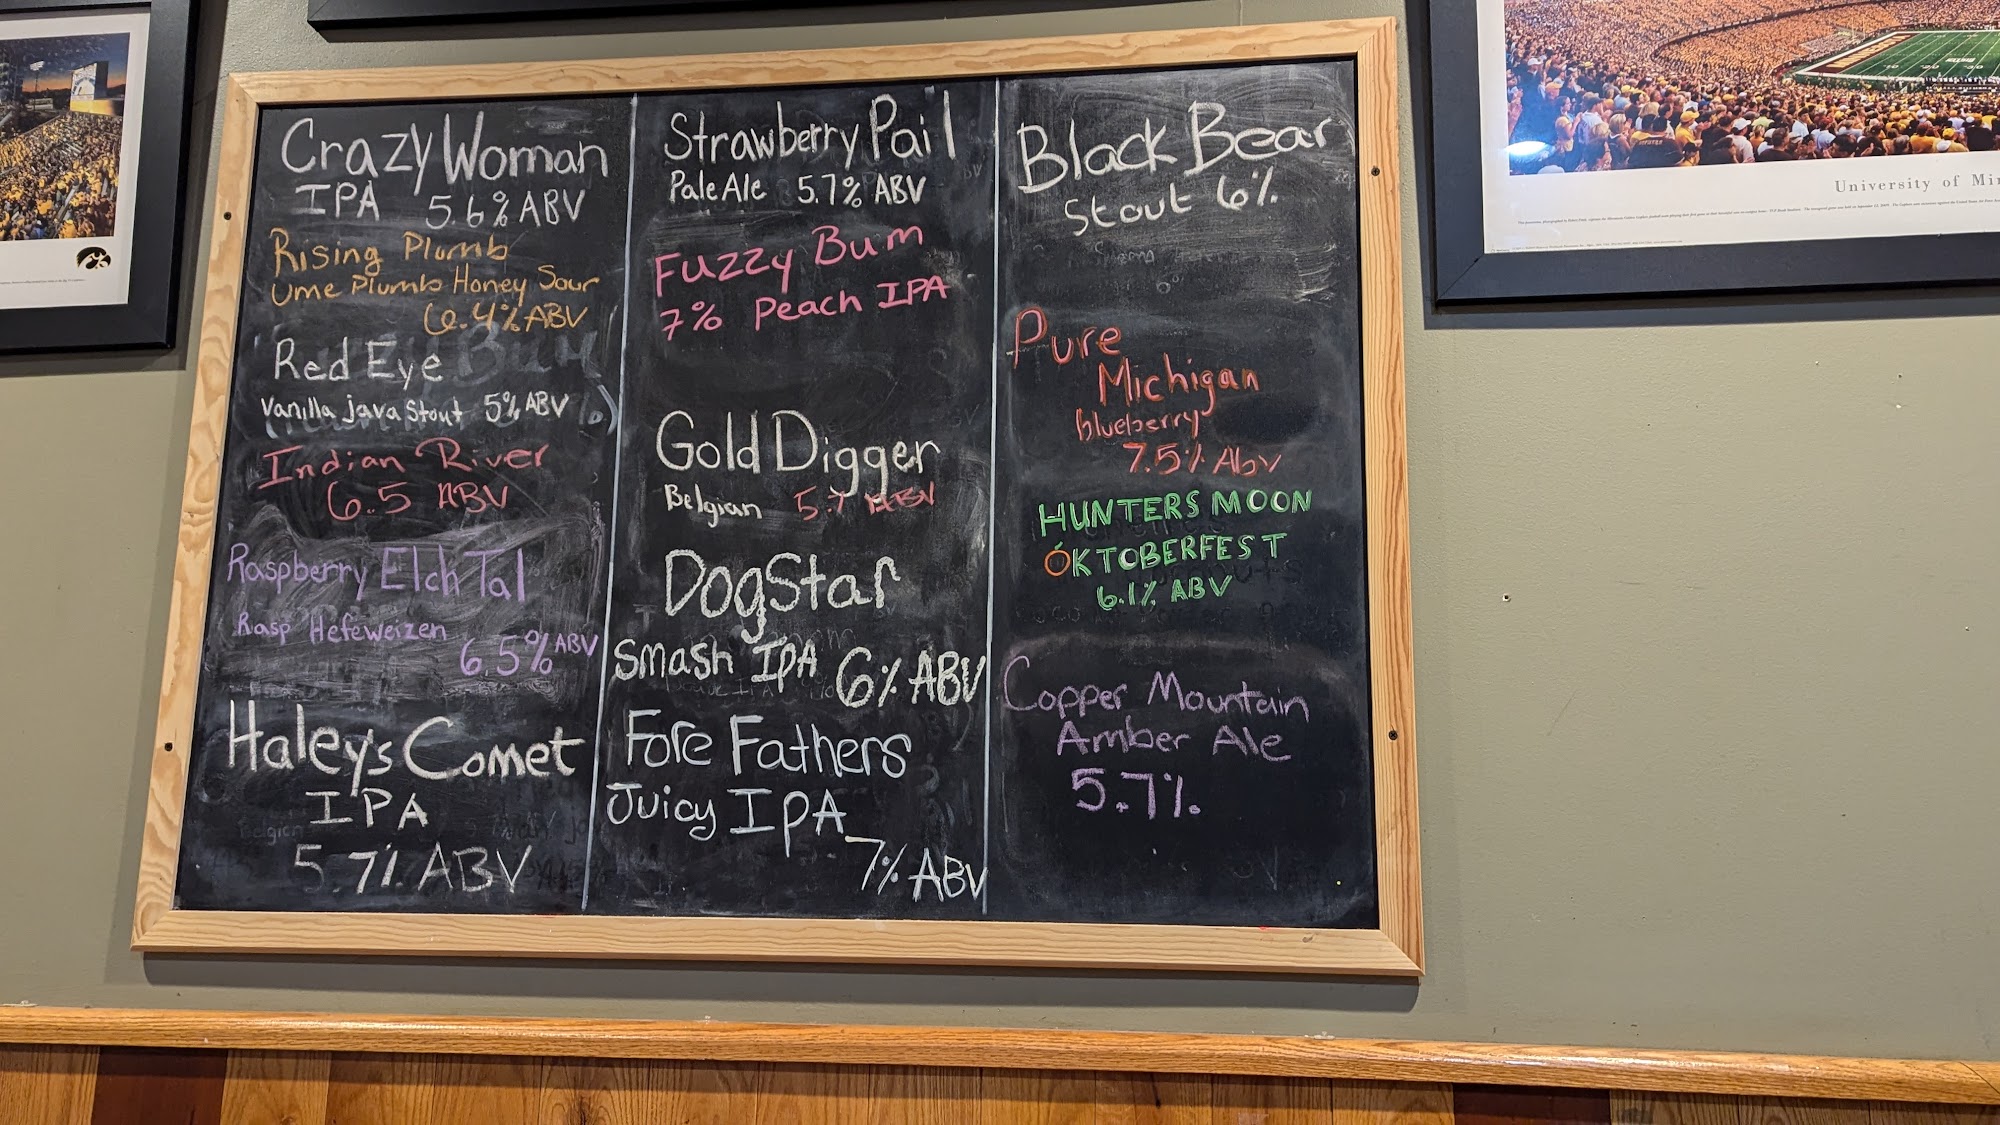 Crazy Woman
IPA 5.6% ABV
Rising Plumb
Ume Plumb Honey Sour
6.4% ABV
Red Eye
Vanilla java Stout 5% ABV
Indian River
6.5 ABV
Raspberry Elch Tal
Rasp Hefeweizen
6.5% ABV
Haley's Comet
IPA
5.7% ABV
Strawberry Pail
Pale Ale 5.7% ABV
Fuzzy Bum
7% Peach IPA
Gold Digger
Belgian 5.7 ABV
DogStar
Smash IPA 6% ABV
Fore Fathers
Juicy IPA
7% ABV
Black Bear
Stout 6%
Pure
Michigan
blueberry
7.5% Abv
HUNTERS MOON
OKTOBERFEST
6.1% ABV
Copper Mountain
Amber Ale
5.7%
University of